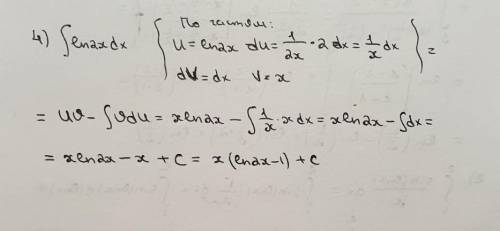 По частям:
4) ∫ln2xdx { u = ln2x du = 1/2x · 2 dx = 1/x dx } =
dV = dx V = x
= UV - ∫Vdu = xln2x - ∫ 1/x · x dx = xln2x - ∫dx =
= xln2x - x + C = x(ln2x-1) + C